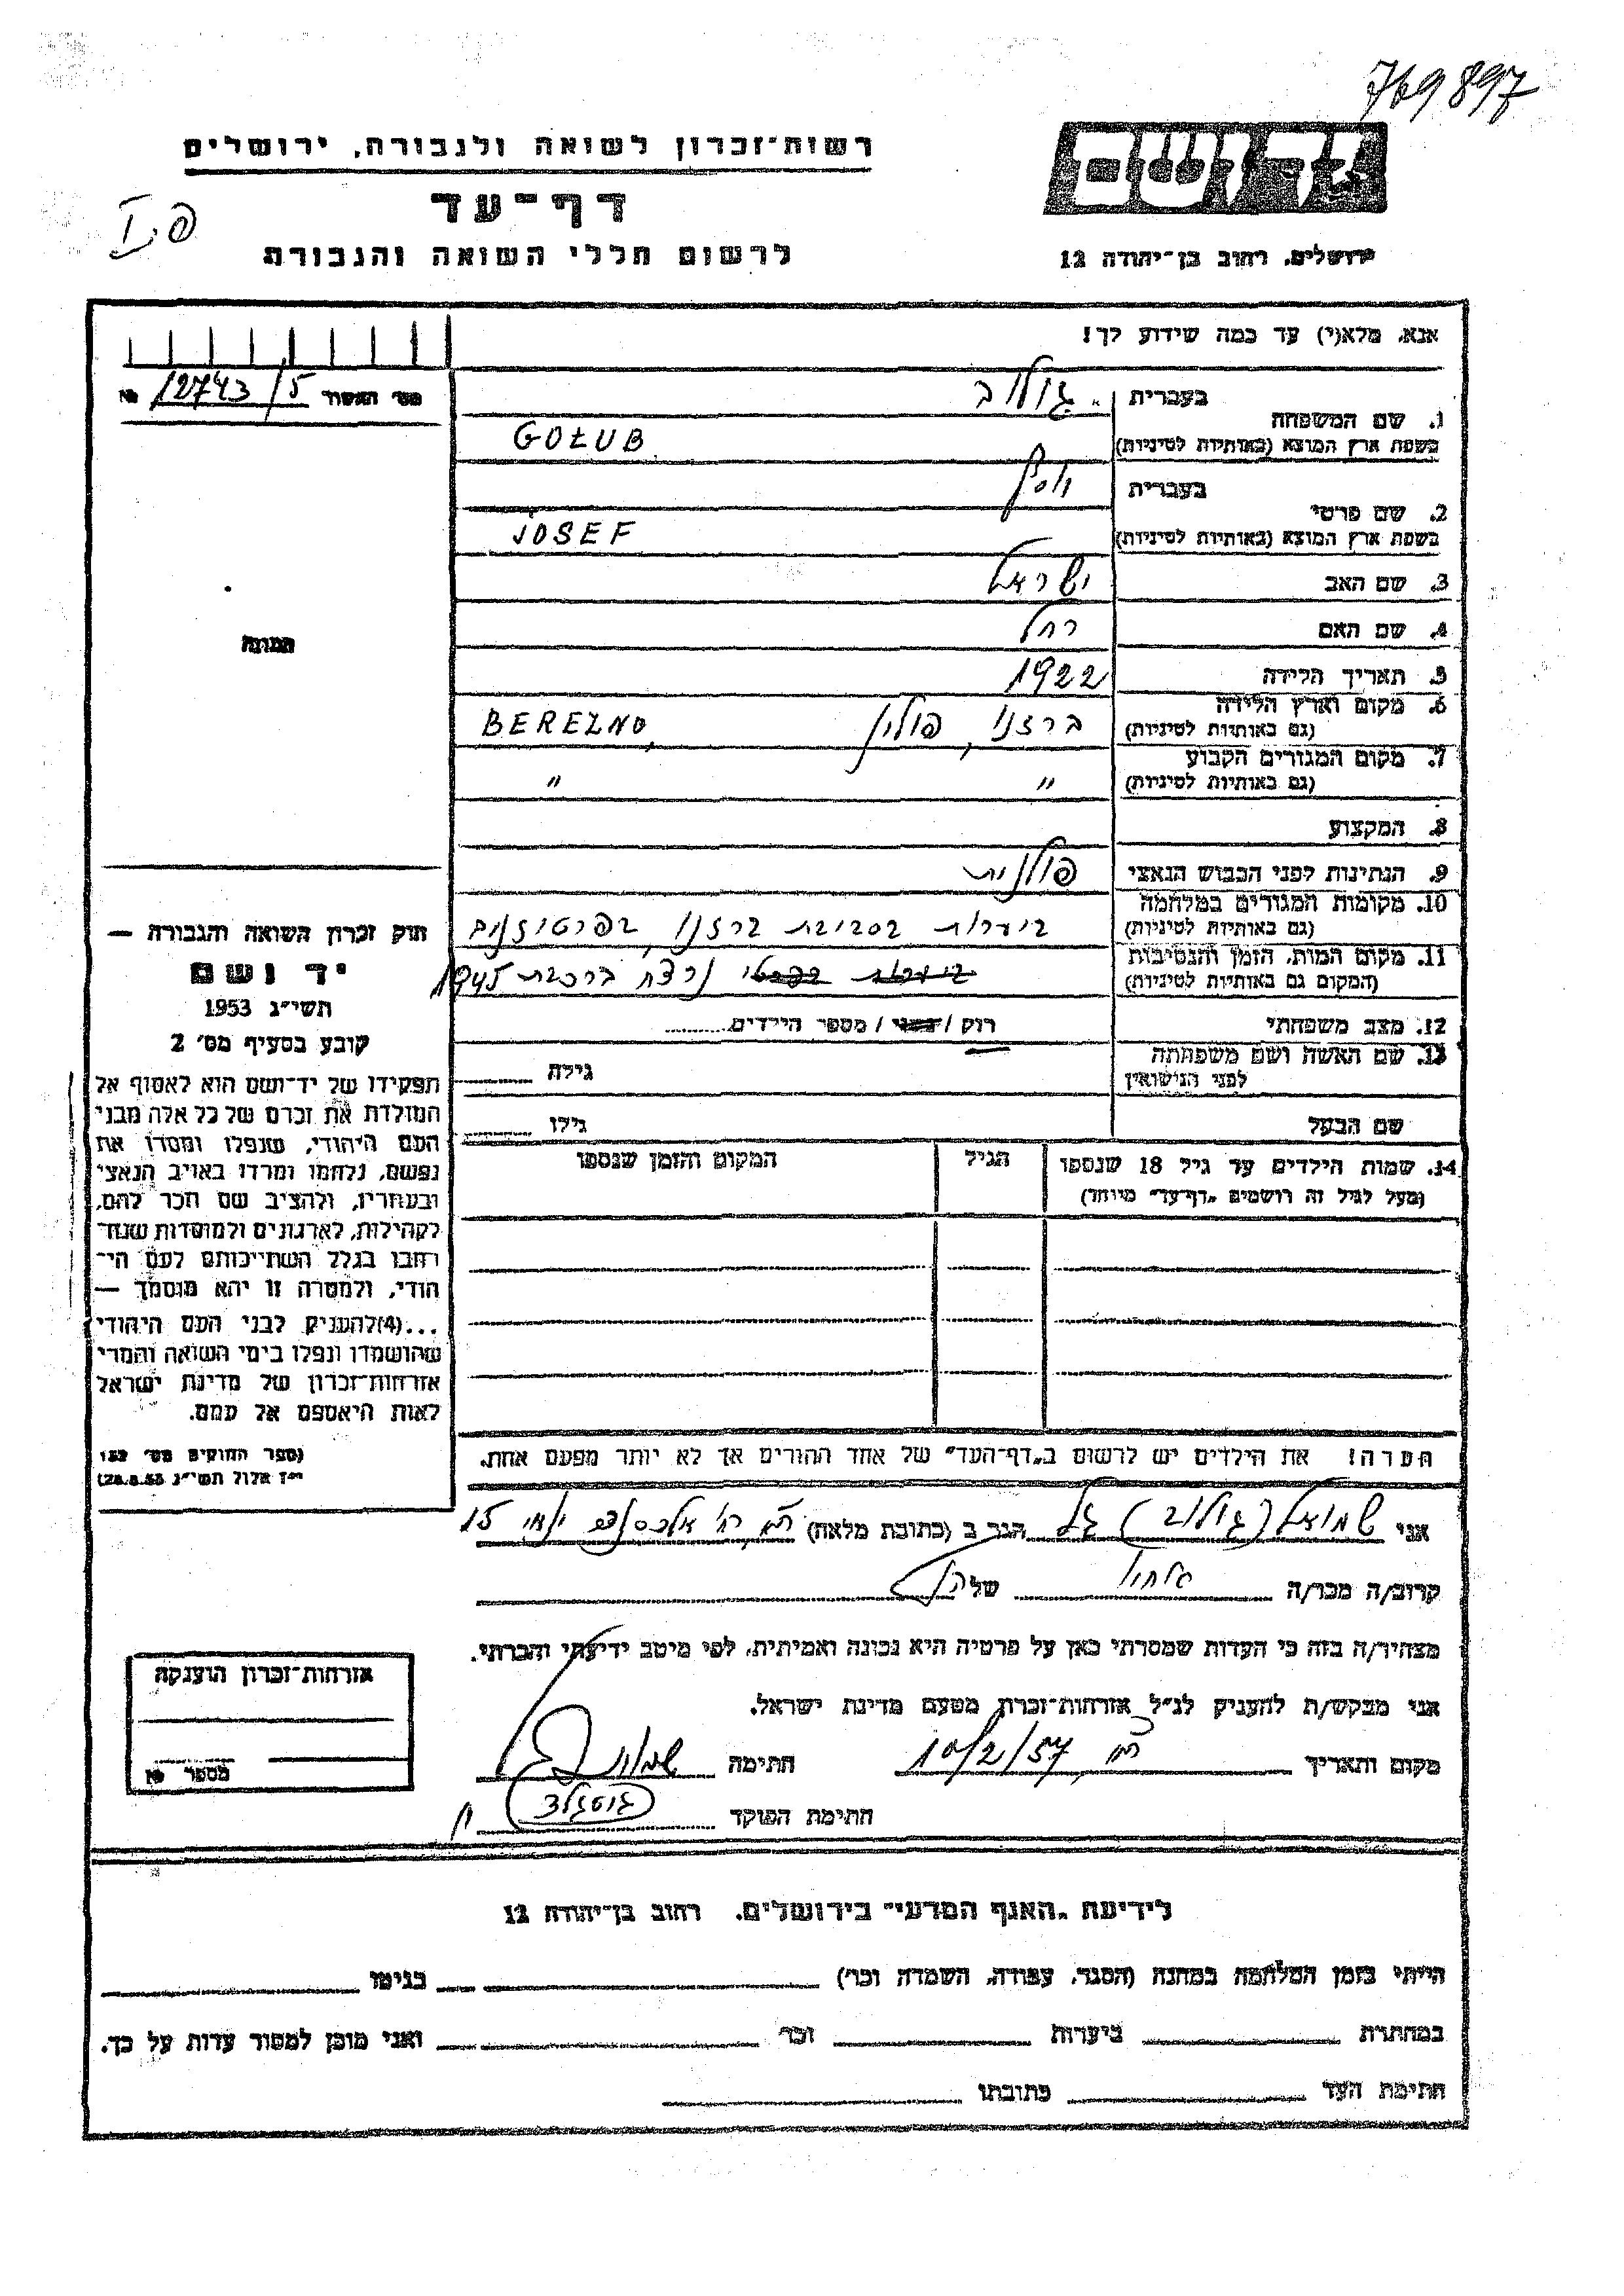 769897
יד ושם
ירושלים, רחוב בן־יהודה 12
רשות־זכרון לשואה ולגבורה, ירושלים
דף־עד
לרשום חללי השואה והגבורה
פ.I
אנא, מלא(י) עד כמה שידוע לך!
1. שם המשפחה
בעברית גולוב
בשפת ארץ המוצא (באותיות לטיניות) GOŁUB
2. שם פרטי
בעברית יוסף
בשפת ארץ המוצא (באותיות לטיניות) JOSEF
3. שם האב ישראל
4. שם האם רחל
5. תאריך הלידה 1922
6. מקום וארץ הלידה ברזנו, פולין BEREZNO,
(גם באותיות לטיניות)
7. מקום המגורים הקבוע " "
(גם באותיות לטיניות)
8. המקצוע
9. הנתינות לפני הכבוש הנאצי פולנית
10. מקומות המגורים במלחמה ביערות בסביבת ברזנו, בפרטיזנים
(גם באותיות לטיניות)
11. מקום המות, הזמן והנסיבות נרצח ברכבת 1945
(המקום גם באותיות לטיניות)
12. מצב משפחתי רווק / נשוי / מספר הילדים
13. שם האשה ושם משפחתה
לפני הנישואין
גילה
שם הבעל גילו
14. שמות הילדים עד גיל 18 שנספו הגיל המקום והזמן שנספו
(מעל לגיל זה רושמים „דף־עד" מיוחד)
הערה! את הילדים יש לרשום ב„דף־העד" של אחד ההורים אך לא יותר מפעם אחת.
מס' האשור 12743/5 №
תמונה
חוק זכרון השואה והגבורה —
יד ושם
תשי"ג 1953
קובע בסעיף מס' 2
תפקידו של יד־ושם הוא לאסוף אל
המולדת את זכרם של כל אלה מבני
העם היהודי, שנפלו ומסרו את
נפשם, נלחמו ומרדו באויב הנאצי
ובעוזריו, ולהציב שם וזכר להם,
לקהילות, לארגונים ולמוסדות שנח־
רבו בגלל השתייכותם לעם הי־
הודי, ולמטרה זו יהא מוסמך —
...(4)להעניק לבני העם היהודי
שהושמדו ונפלו בימי השואה והמרי
אזרחות־זכרון של מדינת ישראל
לאות היאספם אל עמם.
(ספר החוקים מס' 132
י"ז אלול תשי"ג 28.8.53)
אני שמואל (גולוב) גל הגר ב (כתובת מלאה) 15
קרוב/ה מכר/ה של
מצהיר/ה בזה כי העדות שמסרתי כאן על פרטיה היא נכונה ואמיתית, לפי מיטב ידיעתי והכרתי.
אני מבקש/ת להעניק לנ"ל אזרחות־זכרון מטעם מדינת ישראל.
מקום ותאריך 10/2/57 חתימה
חתימת הפוקד
אזרחות־זכרון הוענקה
מספר №
לידיעת „האגף המדעי" בירושלים, רחוב בן־יהודה 12
הייתי בזמן המלחמה במחנה (הסגר, עבודה, השמדה וכו') בגיטו
במחתרת ביערות וכו' ואני מוכן למסור עדות על כך.
חתימת העד כתובתו